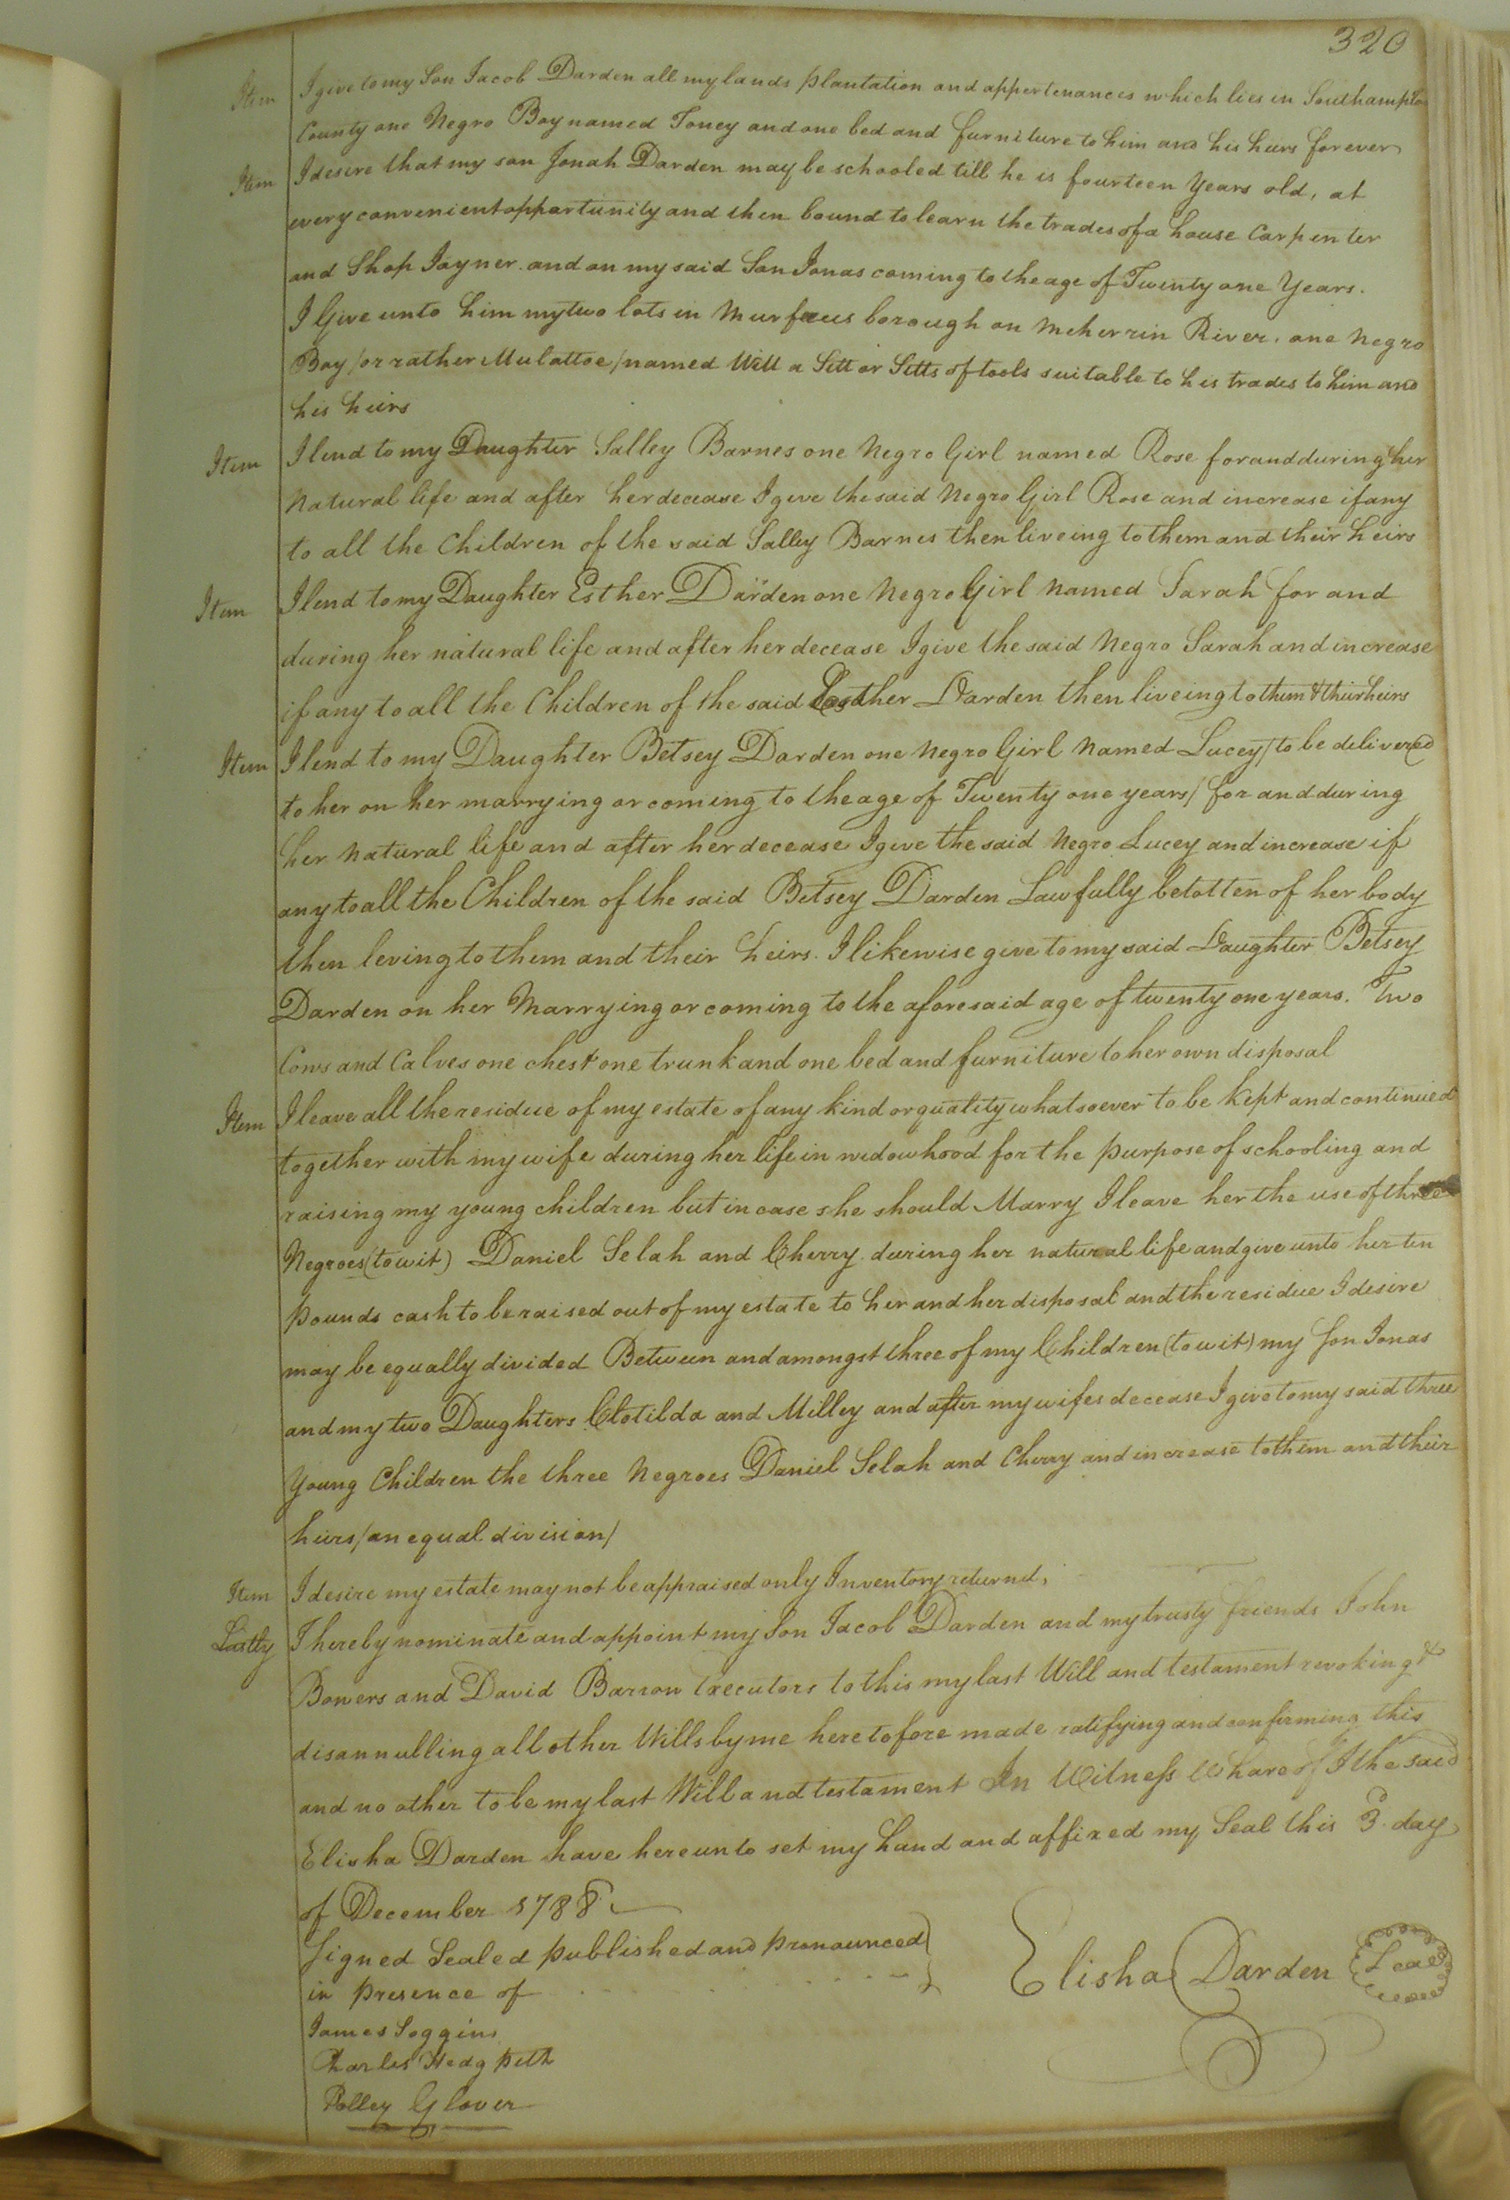 320
Item I give to my Son Jacob Darden all my lands plantation and appertenances which lies in Southampton
County one Negro Boy named Toney and one bed and furniture to him and his heirs forever
Item I desire that my son Jonah Darden may be schooled till he is fourteen Years old, at
every convenient opportunity and then bound to learn the trades of a house Carpenter
and Shop Joyner. and on my said Son Jonas coming to the age of Twenty one Years.
I Give unto him my two lots in Murfrees borough on Meherrin River, one Negro
Boy /or rather Mulattoe/ named Will a Sett or Setts of tools suitable to his trades to him and
his heirs
Item I lend to my Daughter Salley Barnes one Negro Girl named Rose for and during her
Natural life and after her decease I give the said Negro Girl Rose and increase if any
to all the Children of the said Salley Barnes then liveing to them and their heirs
Item I lend to my Daughter Esther Darden one Negro Girl Named Sarah for and
during her natural life and after her decease I give the said Negro Sarah and increase
if any to all the Children of the said Easther Darden then liveing to them & their heirs
Item I lend to my Daughter Betsey Darden one Negro Girl Named Lucey /to be delivered
to her on her marrying or coming to the age of Twenty one years/ for and during
her natural life and after her decease I give the said Negro Lucey and increase if
any to all the Children of the said Betsey Darden Lawfully betotten of her body
then leving to them and their heirs. I likewise give to my said Daughter Betsey
Darden on her Marrying or coming to the aforesaid age of twenty one years. Two
Cows and Calves one chest one trunk and one bed and furniture to her own disposal
Item I leave all the residue of my estate of any kind or quality whatsoever to be kept and continued
together with my wife during her life in widowhood for the purpose of schooling and
raising my young children but in case she should Marry I leave her the use of three
Negroes (to wit) Daniel Selah and Cherry during her natural life and give unto her ten
pounds cash to be raised out of my estate to her and her disposal and the residue I desire
may be equally divided Between and amongst three of my Children (to wit) my Son Jonas
and my two Daughters Clotilda and Milley and after my wifes decease I give to my said three
Young Children the three Negroes Daniel Selah and Cherry and increase to them and their
heirs /an equal division/
Item I desire my estate may not be appraised only Inventory returned,
Lastly I hereby nominate and appoint my Son Jacob Darden and my trusty friends John
Bowers and David Barrow Executors to this my last Will and testament revoking &
disannulling all other Wills by me heretofore made ratifying and confirming this
and no other to be my last Will and testament In Witness Whareof I the said
Elisha Darden have hereunto set my hand and affixed my Seal this 3d day
of December 1788
Signed Sealed published and pronounced
in presence of
Elisha Darden Seal
James Soggins
Charles Hedgpeth
Polley Glover